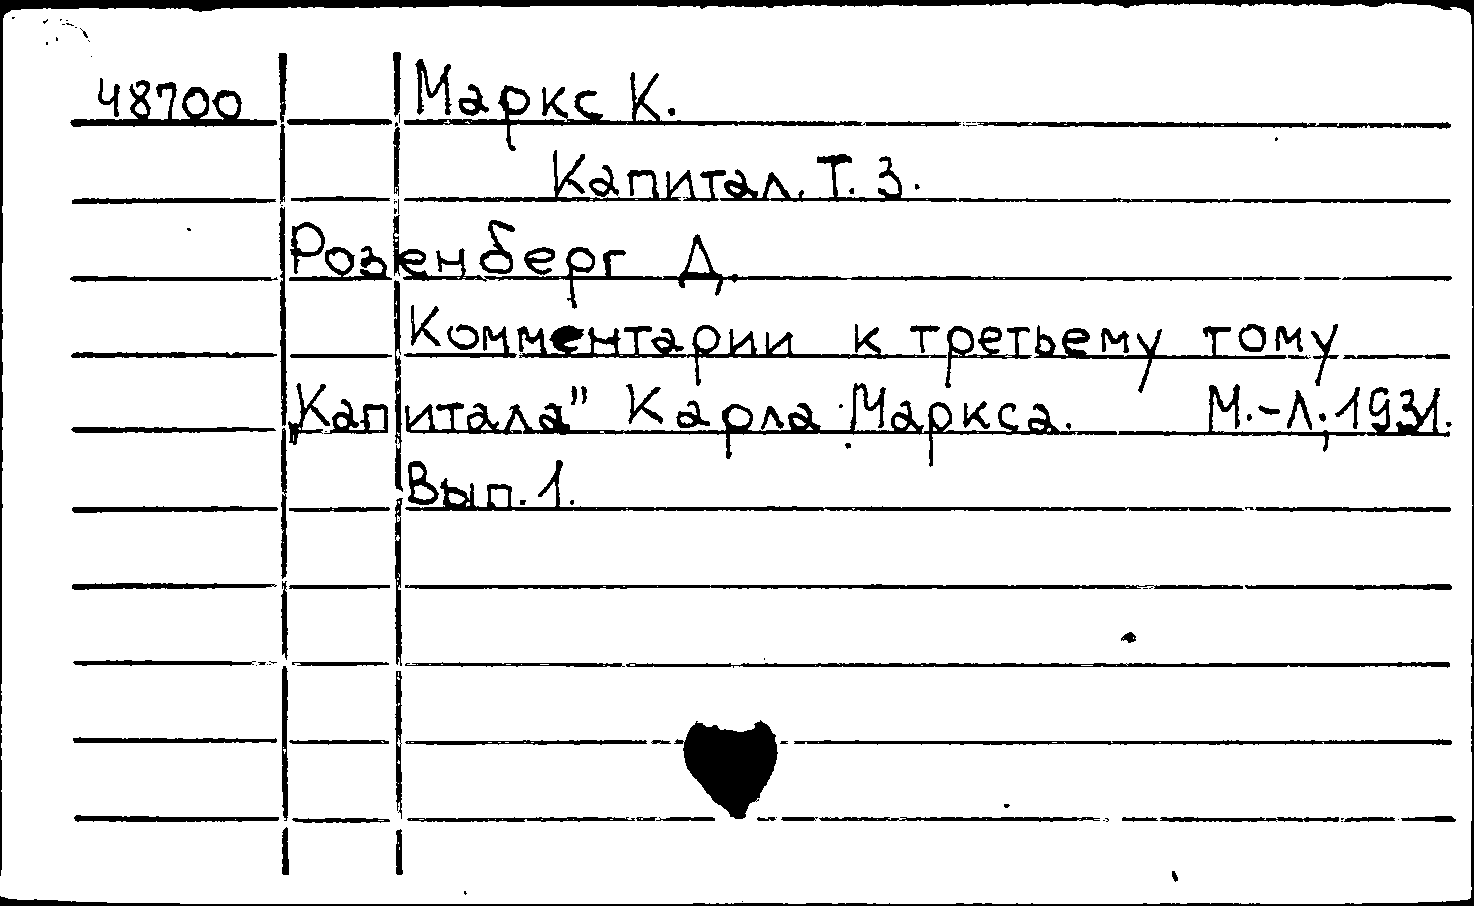 48700 Маркс К.
Капитал. Т. 3.
Розенберг Д.
Комментарии к третьему тому
„Капитала" Карла Маркса. М.-Л., 1931.
Вып. 1.